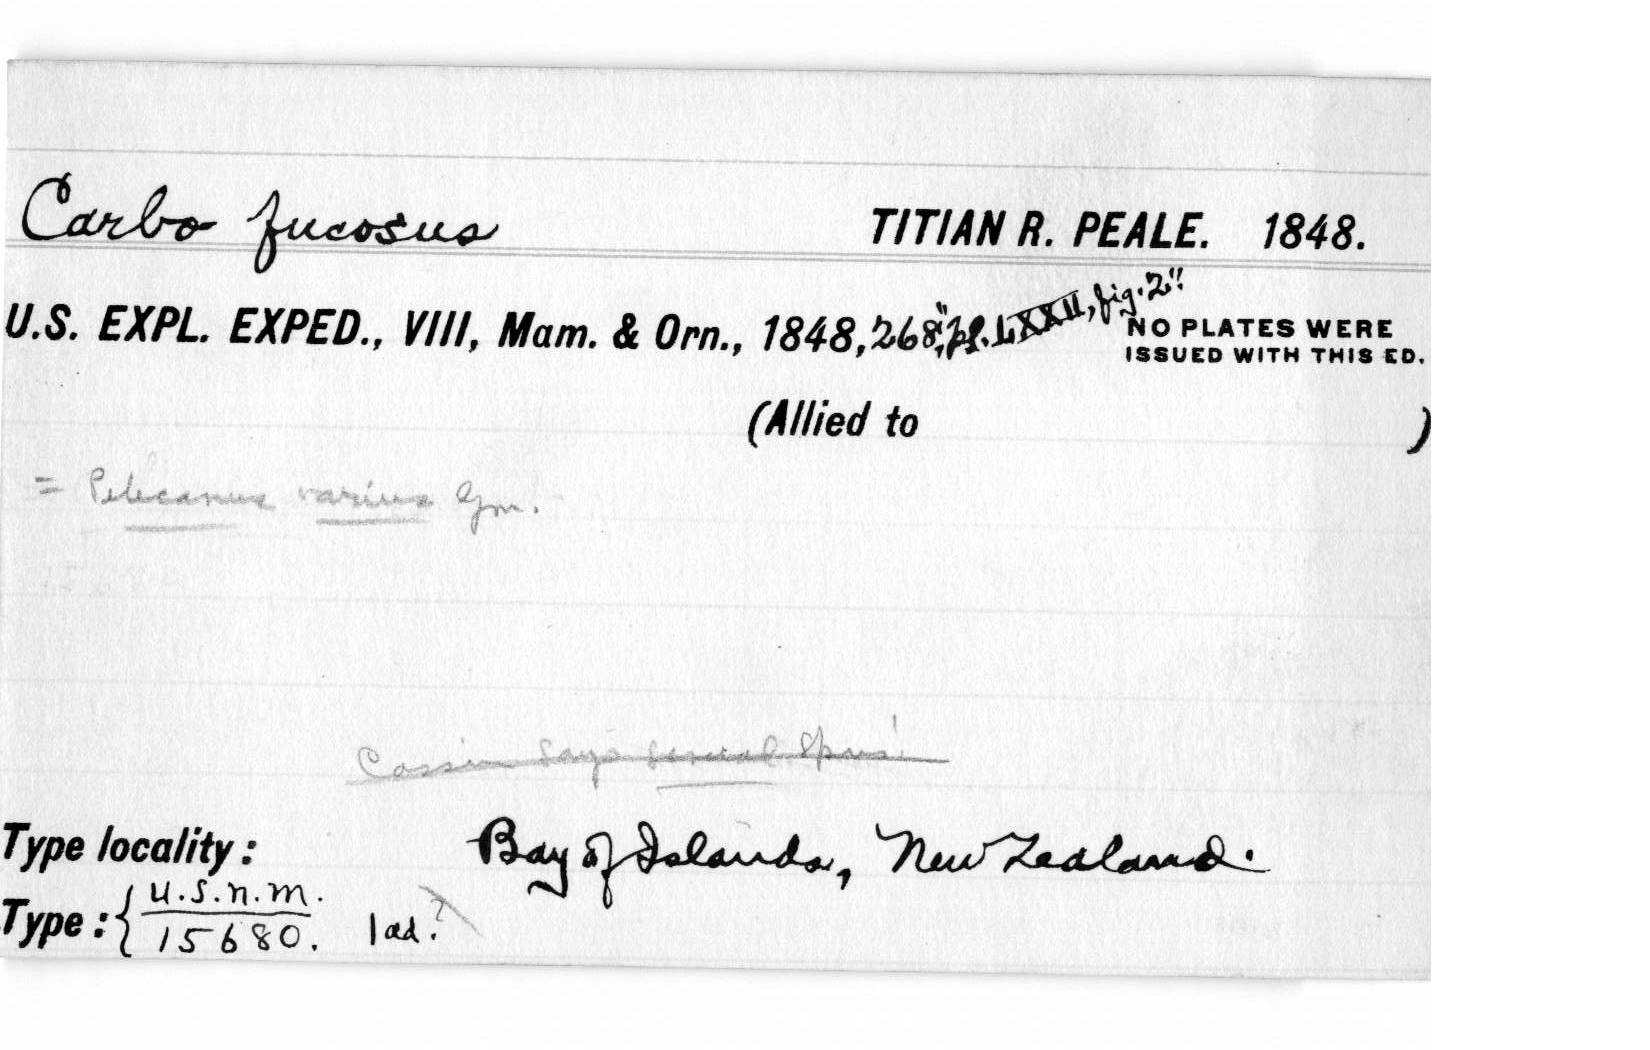 Carbo fucosus TITIAN R. PEALE. 1848.
U.S. EXPL. EXPED., VIII, Mam. & Orn., 1848, 268, "pl. LXXII, fig. 2"
NO PLATES WERE
ISSUED WITH THIS ED.
(Allied to )
= Pelecanus varius Gm.
Cassin says
Type locality: Bay of Islands, New Zealand.
Type: { U.S.N.M. 1 ad.?
15680.